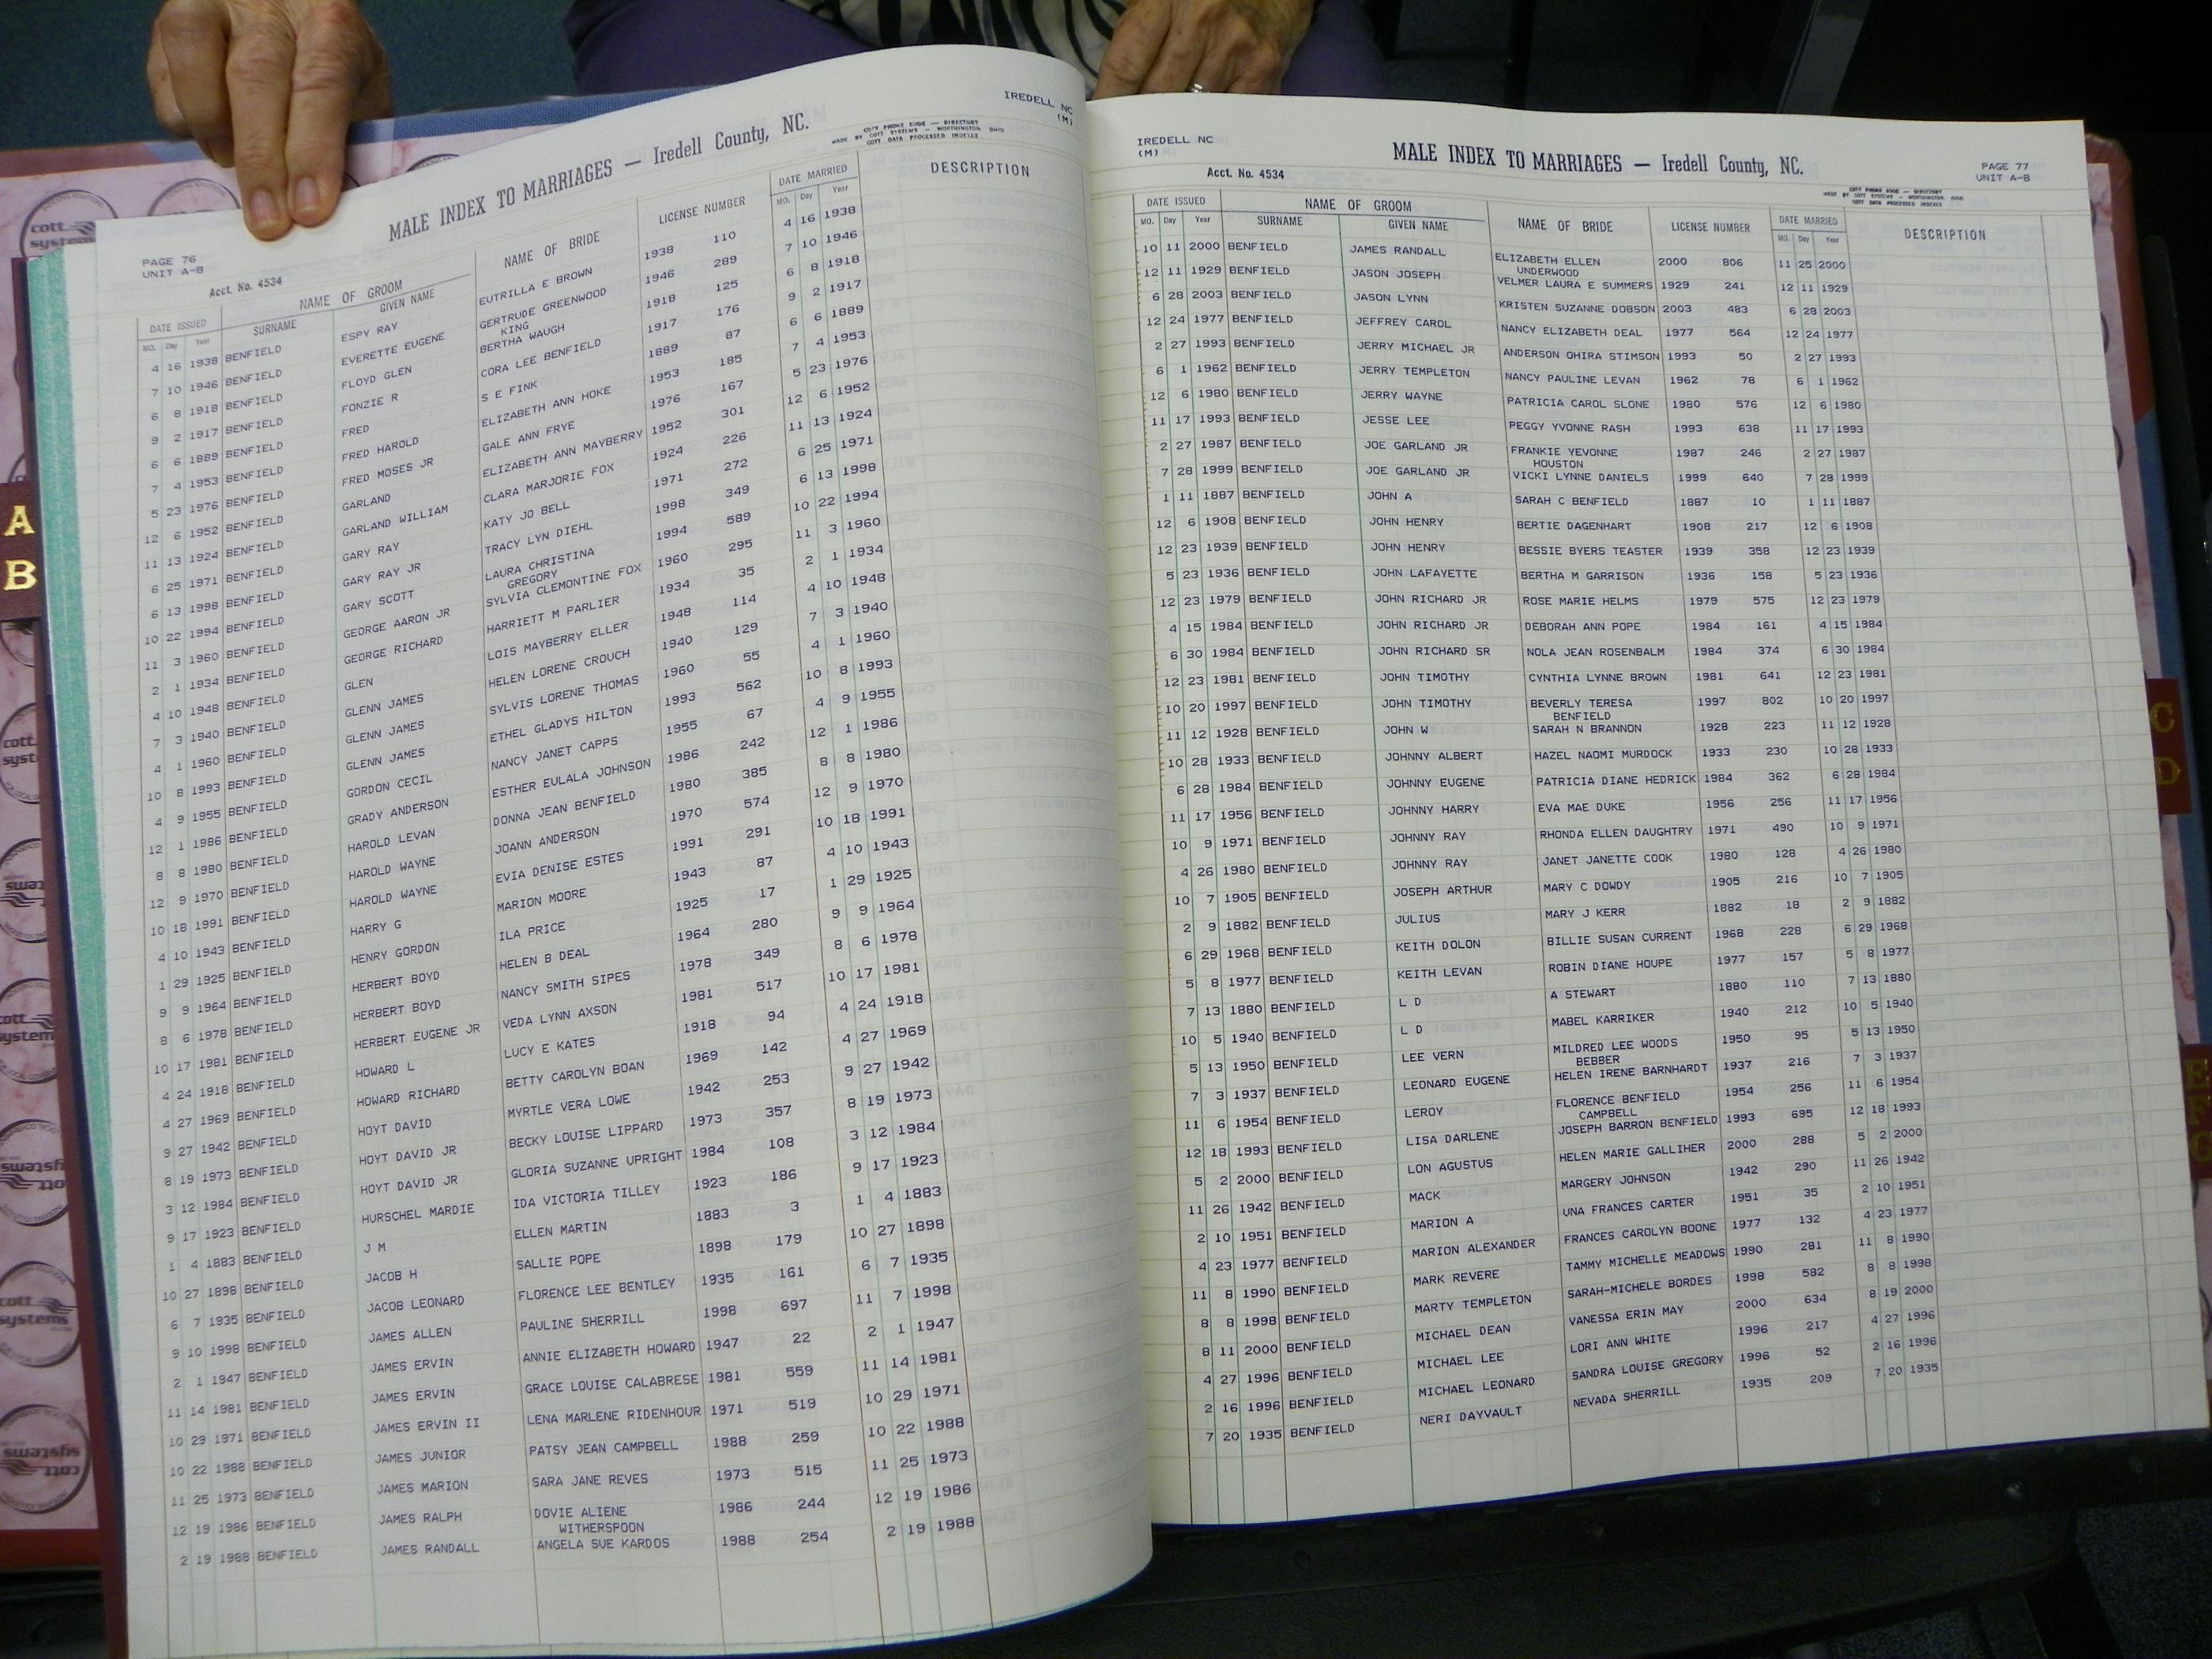 IREDELL NC
(M)
MALE INDEX TO MARRIAGES — Iredell County, NC.
COTT PHONE BOOK — DIRECTORY
MADE BY COTT SYSTEMS — WORTHINGTON OHIO
COTT DATA PROCESSED INDEXES
PAGE 76
UNIT A-B
Acct. No. 4534
DATE ISSUED NAME OF GROOM NAME OF BRIDE LICENSE NUMBER DATE MARRIED DESCRIPTION
MO. Day Year SURNAME GIVEN NAME MO. Day Year
4 16 1938 BENFIELD ESPY RAY EUTRILLA E BROWN 1938 110 4 16 1938
7 10 1946 BENFIELD EVERETTE EUGENE GERTRUDE GREENWOOD 1946 289 7 10 1946
KING
6 8 1918 BENFIELD FLOYD GLEN BERTHA WAUGH 1918 125 6 8 1918
9 2 1917 BENFIELD FONZIE R CORA LEE BENFIELD 1917 176 9 2 1917
6 6 1889 BENFIELD FRED S E FINK 1889 87 6 6 1889
7 4 1953 BENFIELD FRED HAROLD ELIZABETH ANN HOKE 1953 185 7 4 1953
5 23 1976 BENFIELD FRED MOSES JR GALE ANN FRYE 1976 167 5 23 1976
12 6 1952 BENFIELD GARLAND ELIZABETH ANN MAYBERRY 1952 301 12 6 1952
11 13 1924 BENFIELD GARLAND WILLIAM CLARA MARJORIE FOX 1924 226 11 13 1924
6 25 1971 BENFIELD GARY RAY KATY JO BELL 1971 272 6 25 1971
6 13 1998 BENFIELD GARY RAY JR TRACY LYN DIEHL 1998 349 6 13 1998
10 22 1994 BENFIELD GARY SCOTT LAURA CHRISTINA 1994 589 10 22 1994
GREGORY
11 3 1960 BENFIELD GEORGE AARON JR SYLVIA CLEMONTINE FOX 1960 295 11 3 1960
2 1 1934 BENFIELD GEORGE RICHARD HARRIETT M PARLIER 1934 35 2 1 1934
4 10 1948 BENFIELD GLEN LOIS MAYBERRY ELLER 1948 114 4 10 1948
7 3 1940 BENFIELD GLENN JAMES HELEN LORENE CROUCH 1940 129 7 3 1940
4 1 1960 BENFIELD GLENN JAMES SYLVIS LORENE THOMAS 1960 55 4 1 1960
10 8 1993 BENFIELD GLENN JAMES ETHEL GLADYS HILTON 1993 562 10 8 1993
4 9 1955 BENFIELD GORDON CECIL NANCY JANET CAPPS 1955 67 4 9 1955
12 1 1986 BENFIELD GRADY ANDERSON ESTHER EULALA JOHNSON 1986 242 12 1 1986
8 8 1980 BENFIELD HAROLD LEVAN DONNA JEAN BENFIELD 1980 385 8 8 1980
12 9 1970 BENFIELD HAROLD WAYNE JOANN ANDERSON 1970 574 12 9 1970
10 18 1991 BENFIELD HAROLD WAYNE EVIA DENISE ESTES 1991 291 10 18 1991
4 10 1943 BENFIELD HARRY G MARION MOORE 1943 87 4 10 1943
1 29 1925 BENFIELD HENRY GORDON ILA PRICE 1925 17 1 29 1925
9 9 1964 BENFIELD HERBERT BOYD HELEN B DEAL 1964 280 9 9 1964
8 6 1978 BENFIELD HERBERT BOYD NANCY SMITH SIPES 1978 349 8 6 1978
10 17 1981 BENFIELD HERBERT EUGENE JR VEDA LYNN AXSON 1981 517 10 17 1981
4 24 1918 BENFIELD HOWARD L LUCY E KATES 1918 94 4 24 1918
4 27 1969 BENFIELD HOWARD RICHARD BETTY CAROLYN BOAN 1969 142 4 27 1969
9 27 1942 BENFIELD HOYT DAVID MYRTLE VERA LOWE 1942 253 9 27 1942
8 19 1973 BENFIELD HOYT DAVID JR BECKY LOUISE LIPPARD 1973 357 8 19 1973
3 12 1984 BENFIELD HOYT DAVID JR GLORIA SUZANNE UPRIGHT 1984 108 3 12 1984
9 17 1923 BENFIELD HURSCHEL MARDIE IDA VICTORIA TILLEY 1923 186 9 17 1923
1 4 1883 BENFIELD J M ELLEN MARTIN 1883 3 1 4 1883
10 27 1898 BENFIELD JACOB H SALLIE POPE 1898 179 10 27 1898
6 7 1935 BENFIELD JACOB LEONARD FLORENCE LEE BENTLEY 1935 161 6 7 1935
9 10 1998 BENFIELD JAMES ALLEN PAULINE SHERRILL 1998 697 11 7 1998
2 1 1947 BENFIELD JAMES ERVIN ANNIE ELIZABETH HOWARD 1947 22 2 1 1947
11 14 1981 BENFIELD JAMES ERVIN GRACE LOUISE CALABRESE 1981 559 11 14 1981
10 29 1971 BENFIELD JAMES ERVIN II LENA MARLENE RIDENHOUR 1971 519 10 29 1971
10 22 1988 BENFIELD JAMES JUNIOR PATSY JEAN CAMPBELL 1988 259 10 22 1988
11 25 1973 BENFIELD JAMES MARION SARA JANE REVES 1973 515 11 25 1973
12 19 1986 BENFIELD JAMES RALPH DOVIE ALIENE 1986 244 12 19 1986
WITHERSPOON
2 19 1988 BENFIELD JAMES RANDALL ANGELA SUE KARDOS 1988 254 2 19 1988
IREDELL NC
(M)
MALE INDEX TO MARRIAGES — Iredell County, NC.
PAGE 77
UNIT A-B
Acct. No. 4534
COTT PHONE BOOK — DIRECTORY
MADE BY COTT SYSTEMS — WORTHINGTON OHIO
COTT DATA PROCESSED INDEXES
DATE ISSUED NAME OF GROOM NAME OF BRIDE LICENSE NUMBER DATE MARRIED DESCRIPTION
MO. Day Year SURNAME GIVEN NAME MO. Day Year
10 11 2000 BENFIELD JAMES RANDALL ELIZABETH ELLEN 2000 806 11 25 2000
UNDERWOOD
12 11 1929 BENFIELD JASON JOSEPH VELMER LAURA E SUMMERS 1929 241 12 11 1929
6 28 2003 BENFIELD JASON LYNN KRISTEN SUZANNE DOBSON 2003 483 6 28 2003
12 24 1977 BENFIELD JEFFREY CAROL NANCY ELIZABETH DEAL 1977 564 12 24 1977
2 27 1993 BENFIELD JERRY MICHAEL JR ANDERSON OHIRA STIMSON 1993 50 2 27 1993
6 1 1962 BENFIELD JERRY TEMPLETON NANCY PAULINE LEVAN 1962 78 6 1 1962
12 6 1980 BENFIELD JERRY WAYNE PATRICIA CAROL SLONE 1980 576 12 6 1980
11 17 1993 BENFIELD JESSE LEE PEGGY YVONNE RASH 1993 638 11 17 1993
2 27 1987 BENFIELD JOE GARLAND JR FRANKIE YEVONNE 1987 246 2 27 1987
HOUSTON
7 28 1999 BENFIELD JOE GARLAND JR VICKI LYNNE DANIELS 1999 640 7 28 1999
1 11 1887 BENFIELD JOHN A SARAH C BENFIELD 1887 10 1 11 1887
12 6 1908 BENFIELD JOHN HENRY BERTIE DAGENHART 1908 217 12 6 1908
12 23 1939 BENFIELD JOHN HENRY BESSIE BYERS TEASTER 1939 358 12 23 1939
5 23 1936 BENFIELD JOHN LAFAYETTE BERTHA M GARRISON 1936 158 5 23 1936
12 23 1979 BENFIELD JOHN RICHARD JR ROSE MARIE HELMS 1979 575 12 23 1979
4 15 1984 BENFIELD JOHN RICHARD JR DEBORAH ANN POPE 1984 161 4 15 1984
6 30 1984 BENFIELD JOHN RICHARD SR NOLA JEAN ROSENBALM 1984 374 6 30 1984
12 23 1981 BENFIELD JOHN TIMOTHY CYNTHIA LYNNE BROWN 1981 641 12 23 1981
10 20 1997 BENFIELD JOHN TIMOTHY BEVERLY TERESA 1997 802 10 20 1997
BENFIELD
11 12 1928 BENFIELD JOHN W SARAH N BRANNON 1928 223 11 12 1928
10 28 1933 BENFIELD JOHNNY ALBERT HAZEL NAOMI MURDOCK 1933 230 10 28 1933
6 28 1984 BENFIELD JOHNNY EUGENE PATRICIA DIANE HEDRICK 1984 362 6 28 1984
11 17 1956 BENFIELD JOHNNY HARRY EVA MAE DUKE 1956 256 11 17 1956
10 9 1971 BENFIELD JOHNNY RAY RHONDA ELLEN DAUGHTRY 1971 490 10 9 1971
4 26 1980 BENFIELD JOHNNY RAY JANET JANETTE COOK 1980 128 4 26 1980
10 7 1905 BENFIELD JOSEPH ARTHUR MARY C DOWDY 1905 216 10 7 1905
2 9 1882 BENFIELD JULIUS MARY J KERR 1882 18 2 9 1882
6 29 1968 BENFIELD KEITH DOLON BILLIE SUSAN CURRENT 1968 228 6 29 1968
5 8 1977 BENFIELD KEITH LEVAN ROBIN DIANE HOUPE 1977 157 5 8 1977
7 13 1880 BENFIELD L D A STEWART 1880 110 7 13 1880
10 5 1940 BENFIELD L D MABEL KARRIKER 1940 212 10 5 1940
5 13 1950 BENFIELD LEE VERN MILDRED LEE WOODS 1950 95 5 13 1950
BEBBER
7 3 1937 BENFIELD LEONARD EUGENE HELEN IRENE BARNHARDT 1937 216 7 3 1937
11 6 1954 BENFIELD LEROY FLORENCE BENFIELD 1954 256 11 6 1954
CAMPBELL
12 18 1993 BENFIELD LISA DARLENE JOSEPH BARRON BENFIELD 1993 695 12 18 1993
5 2 2000 BENFIELD LON AGUSTUS HELEN MARIE GALLIHER 2000 288 5 2 2000
11 26 1942 BENFIELD MACK MARGERY JOHNSON 1942 290 11 26 1942
2 10 1951 BENFIELD MARION A UNA FRANCES CARTER 1951 35 2 10 1951
4 23 1977 BENFIELD MARION ALEXANDER FRANCES CAROLYN BOONE 1977 132 4 23 1977
11 8 1990 BENFIELD MARK REVERE TAMMY MICHELLE MEADOWS 1990 281 11 8 1990
8 8 1998 BENFIELD MARTY TEMPLETON SARAH-MICHELE BORDES 1998 582 8 8 1998
8 11 2000 BENFIELD MICHAEL DEAN VANESSA ERIN MAY 2000 634 8 19 2000
4 27 1996 BENFIELD MICHAEL LEE LORI ANN WHITE 1996 217 4 27 1996
2 16 1996 BENFIELD MICHAEL LEONARD SANDRA LOUISE GREGORY 1996 52 2 16 1996
7 20 1935 BENFIELD NERI DAYVAULT NEVADA SHERRILL 1935 209 7 20 1935
A
B
C
D
cott
systems